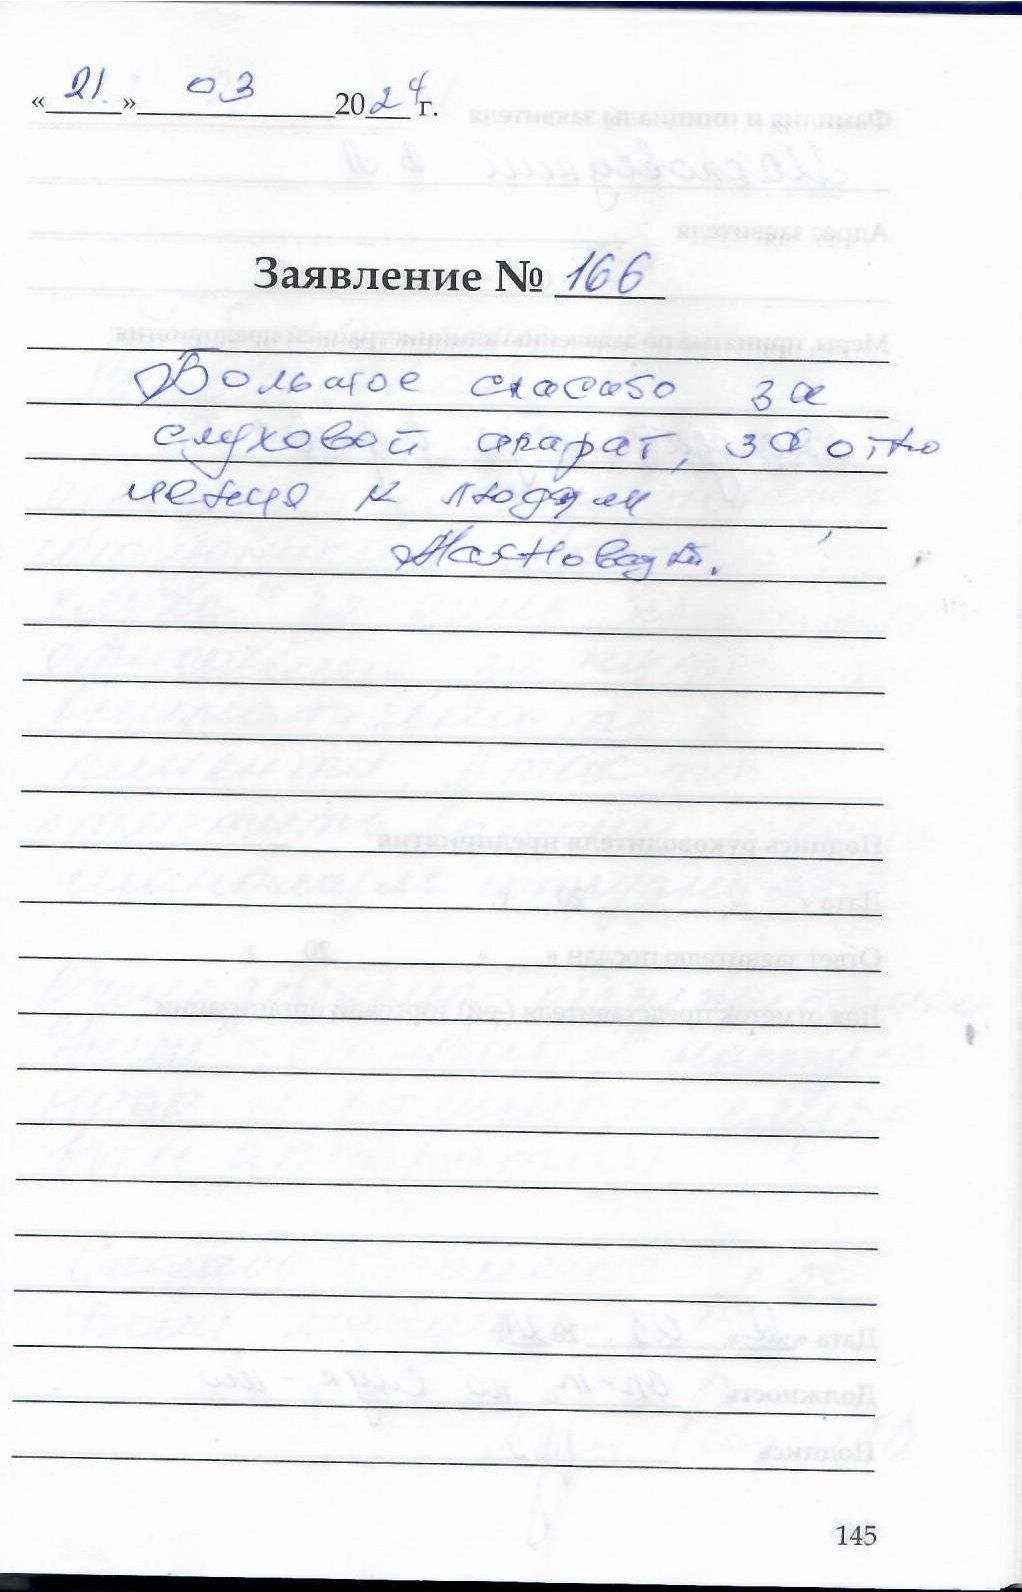 «21.» 03 2024 г.
Заявление № 166
Большое спасибо за
слуховой апарат, за отно
шения к людям
145